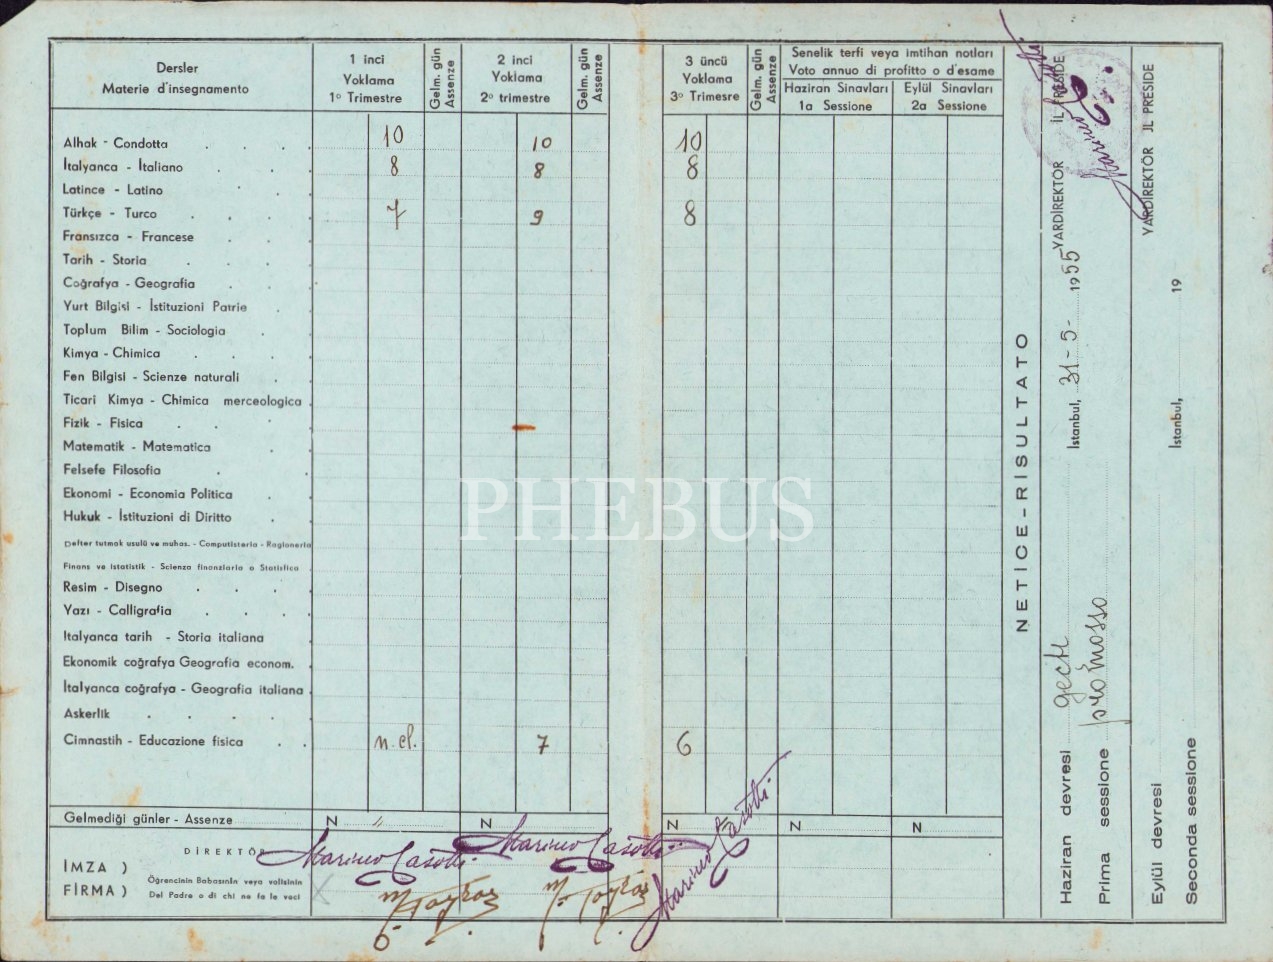 Dersler
Materie d'insegnamento
1 inci
Yoklama
1º Trimestre
Gelm. gün
Assenze
2 inci
Yoklama
2º trimestre
Gelm. gün
Assenze
3 üncü
Yoklama
3º Trimesre
Gelm. gün
Assenze
Senelik terfi veya imtihan notları
Voto annuo di profitto o d'esame
Haziran Sınavları
1a Sessione
Eylül Sınavları
2a Sessione
Alhak - Condotta 10 10 10
İtalyanca - İtaliano 8 8 8
Latince - Latino
Türkçe - Turco 7 9 8
Fransızca - Francese
Tarih - Storia
Coğrafya - Geografia
Yurt Bilgisi - İstituzioni Patrie
Toplum Bilim - Sociologia
Kimya - Chimica
Fen Bilgisi - Scienze naturali
Ticari Kimya - Chimica merceologica
Fizik - Fisica
Matematik - Matematica
Felsefe Filosofia
Ekonomi - Economia Politica
Hukuk - İstituzioni di Diritto
Defter tutmak usulü ve muhas. - Computisteria - Ragioneria
Finans ve istatistik - Scienza finanziaria o Statistica
Resim - Disegno
Yazı - Calligrafia
İtalyanca tarih - Storia italiana
Ekonomik coğrafya Geografia econom.
İtalyanca coğrafya - Geografia italiana
Askerlik
Cimnastih - Educazione fisica n. cl. 7 6
Gelmediği günler - Assenze N " N N N N
DİREKTÖR Marino Casotti Marino Casotti Marino Casotti
İMZA )
FİRMA )
Öğrencinin Babasının veya velisinin
Del Padre o di chi ne fa le veci
PHEBUS
NETİCE - RISULTATO
Haziran devresi geçti İstanbul, 31-5-1955 YARDİREKTÖR İL PRESIDE
Prima sessione promosso
Eylül devresi İstanbul, 19 YARDİREKTÖR JL PRESIDE
Seconda sessione